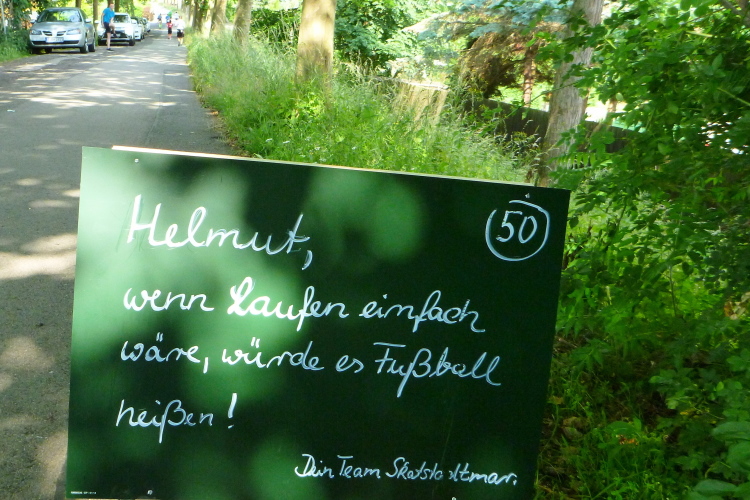 50
Helmut,
wenn Laufen einfach
wäre, würde es Fußball
heißen!
Dein Team